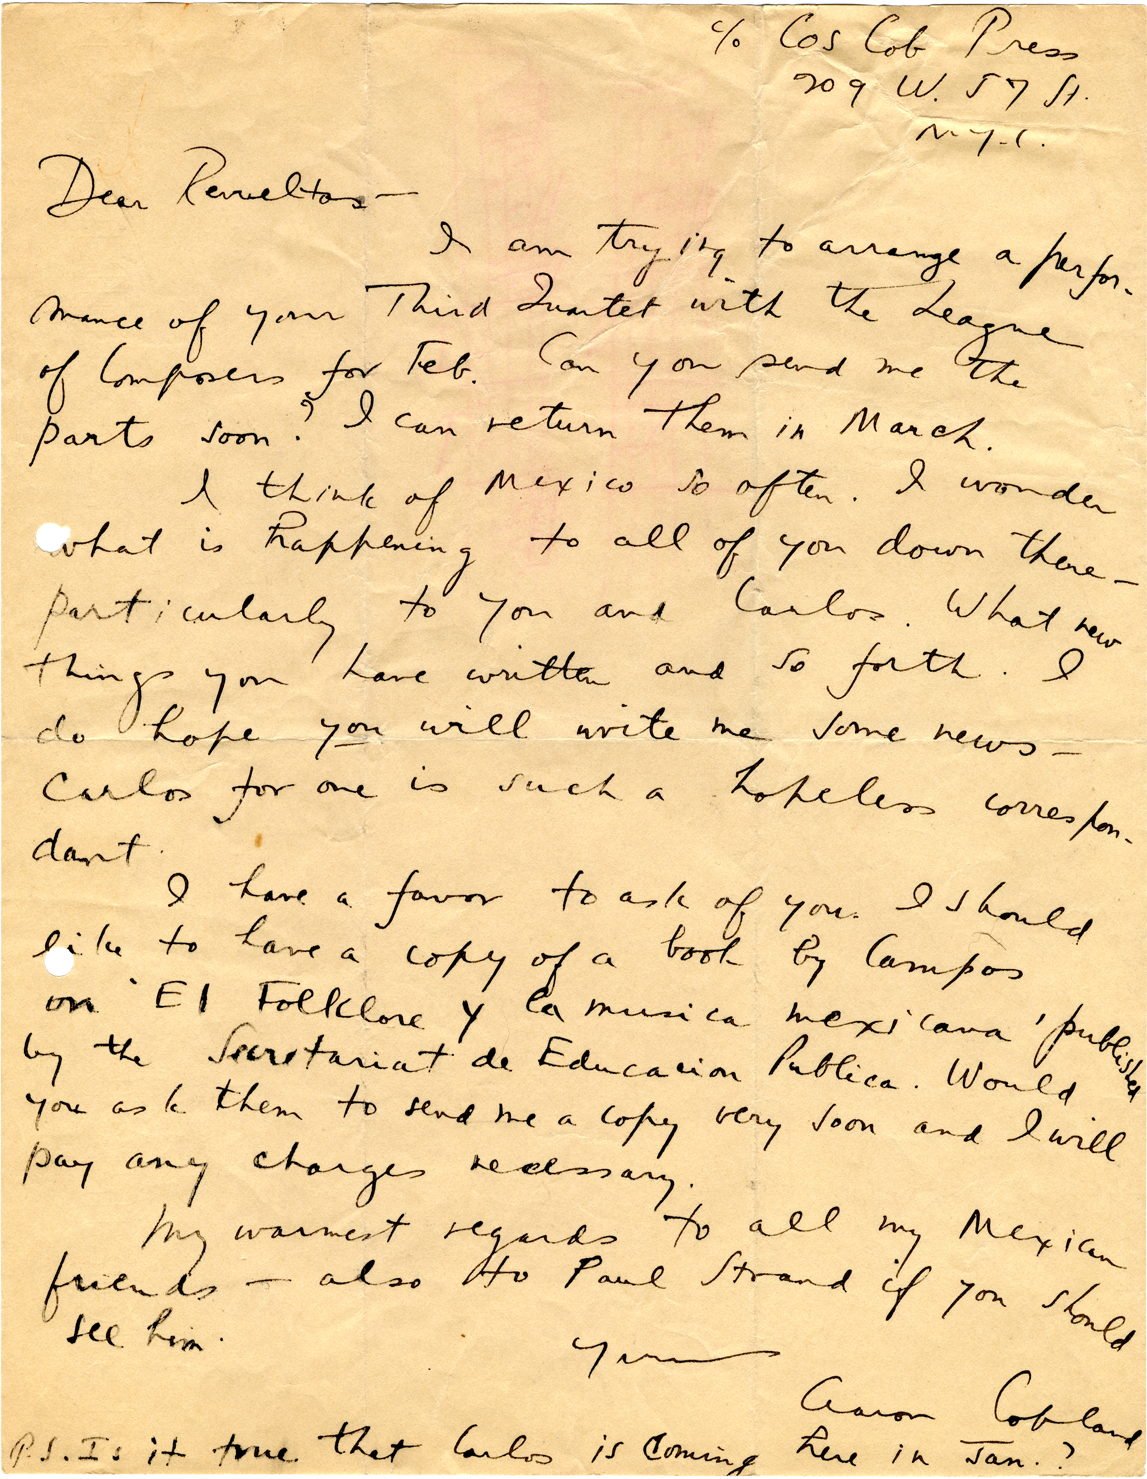 c/o Cos Cob Press
209 W. 57 St.
N.Y.C.
Dear Revueltas —
I am trying to arrange a perfor-
mance of your Third Quartet with the League
of Composers for Feb. Can you send me the
parts soon? I can return them in March.
I think of Mexico so often. I wonder
what is happening to all of you down there —
particularly to you and Carlos. What new
things you have written and so forth. I
do hope you will write me some news —
Carlos for one is such a hopeless correspon-
dant.
I have a favor to ask of you. I should
like to have a copy of a book by Campos
on 'El Folklore y la musica mexicana' published
by the Secretariat de Educacion Publica. Would
you ask them to send me a copy very soon and I will
pay any charges necessary.
My warmest regards to all my Mexican
friends — also to Paul Strand if you should
see him.
Yours
Aaron Copland
P.S. Is it true that Carlos is coming here in Jan.?